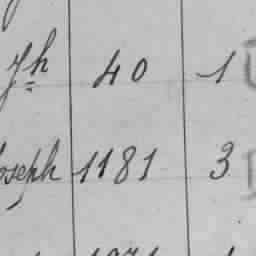 Jh 40 1
Joseph 1181 3